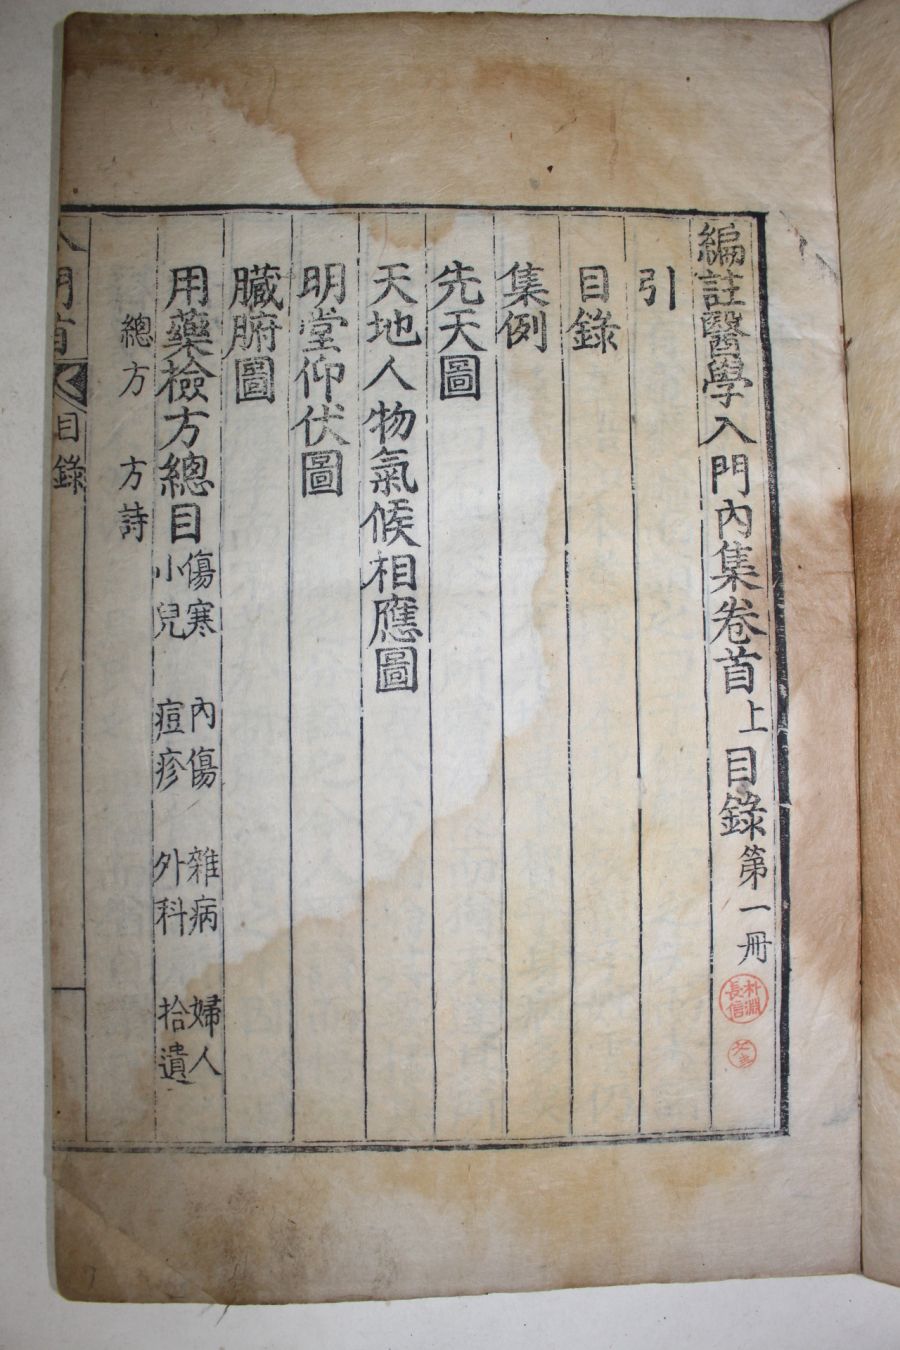 編註醫學入門內集卷首上目錄第一冊
朴淵
長信
引
目錄
集例
先天圖
天地人物氣候相應圖
明堂仰伏圖
臟腑圖
用藥檢方總目 傷寒 內傷 雜病 婦人
小兒 痘疹 外科 拾遺
總方 方詩
入門首 目錄